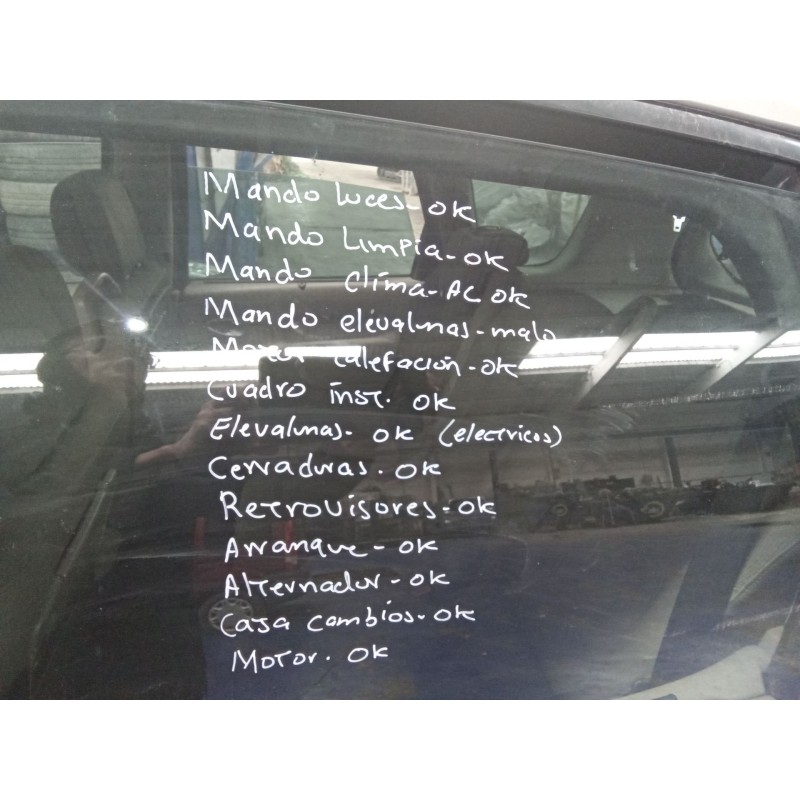 Mando luces - OK
Mando Limpia - OK
Mando clima - AC OK
Mando elevalunas - malo
Motor calefacion - OK
Cuadro inst. OK
Elevalunas - OK (electricos)
Cerraduras. OK
Retrovisores - OK
Arranque - OK
Alternador - OK
Caja cambios - OK
Motor. OK